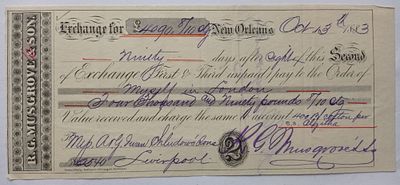 R.G. MUSGROVE & SON.
Exchange for £4090. 5/10 stg New Orleans Oct 13th 1883
Ninety days after sight of this Second
of Exchange (First & Third unpaid) pay to the Order of
Myself in London
Four Thousand and Ninety pounds 5/10 stg
Value received and charge the same to account 400 B/ Cotton per
S.S.
Mess. A & G
Liverpool
2
R.G. Musgrove & Son